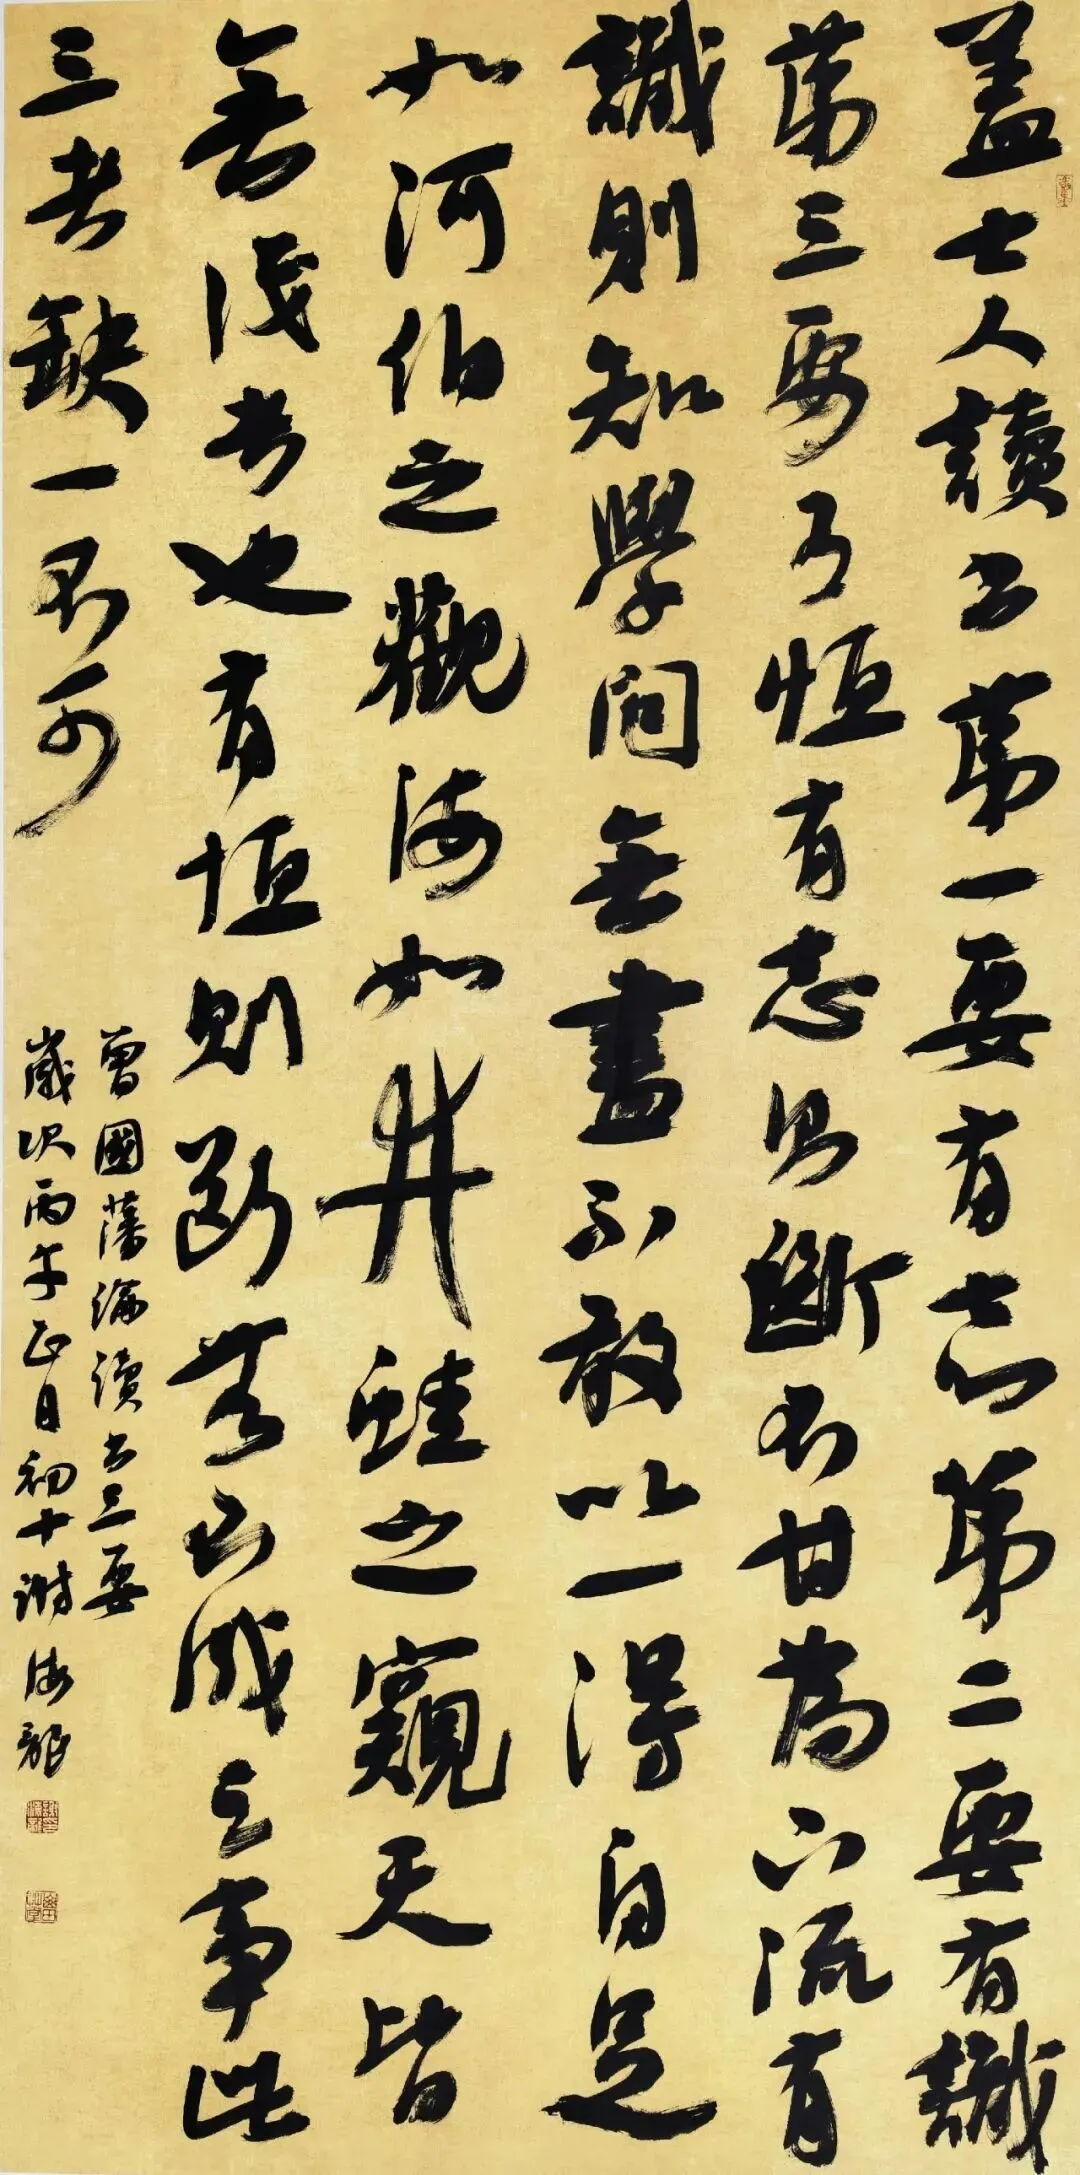 盖士人讀書第一要有志第二要有識
第三要有恒有志則斷不甘為下流有
識則知學問無盡不敢以一得自足
如河伯之觀海如井蛙之窺天皆
無識者也有恒則斷無不成之事此
三者缺一不可
曾國藩論讀書三要
歲次丙午正月初十謝海龍